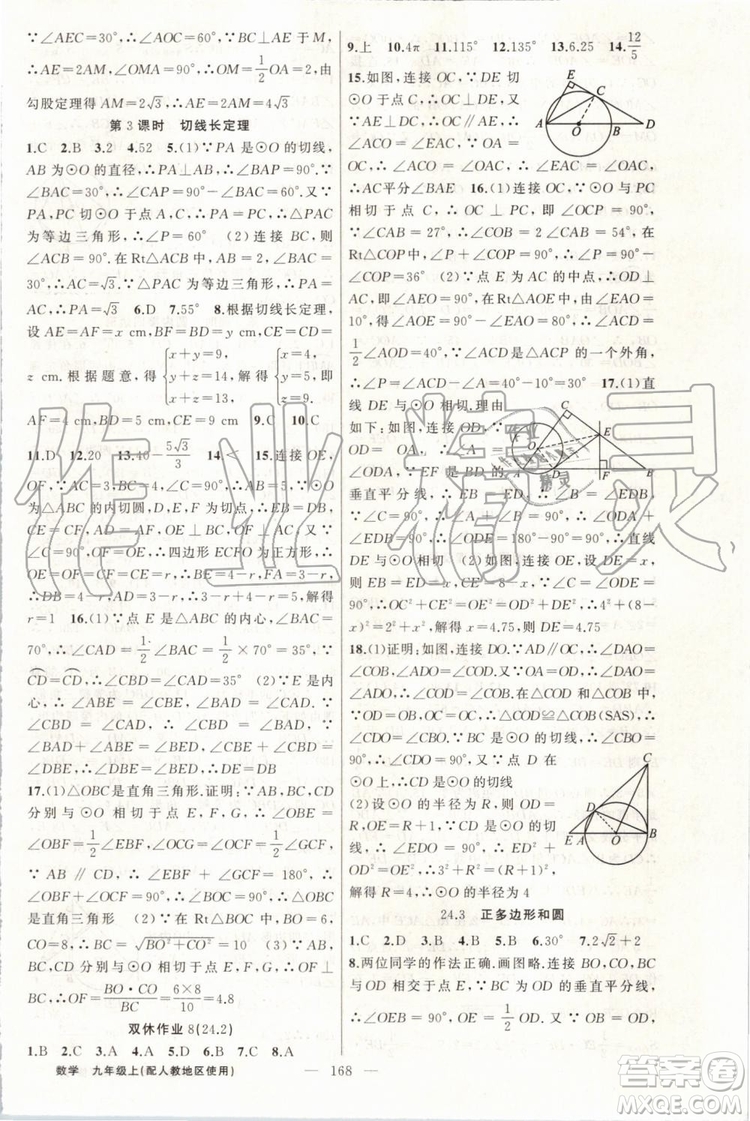 ∵∠AEC=30°,∴∠ABC=30° ∵BC⊥AE于点M,
∴AE=2AM,∠OMA=90°,∴OM=1/2OA=2,由
勾股定理得AM=2√3,∴AE=2AM=4√3
第3课时 切线长定理
1.C 2.B 3.2 4.52 5.(1)∵PA是⊙O的切线,
AB为⊙O的直径,∴PA⊥AB,∴∠PAB=90°.∵
∠BAC=30°,∴∠PAC=90°-30°=60°.又∵
PA,PC切⊙O于点A,C,∴PA=PC,∴△PAC
为等边三角形,∴∠P=60° (2)连接BC,则
∠ACB=90°,在Rt△ACB中,AB=2,∠BAC=
30°,∴AC=√3,∵△PAC为等边三角形,∴PA=
AC,∴PA=√3 6.D 7.55° 8.根据切线长定理,
设AE=AF=x cm,BF=BD=y cm,CE=CD=
z cm.根据题意,得{x+y=9,y+z=14,x+z=13,解得{x=4,y=5,z=9,即
AF=4 cm,BD=5 cm,CE=9 cm 9.C 10.C
11.D 12.20 13.40-5√3/3 14.< 15.连接OE,
OF,∵∠C=90°,AC=3,BC=4,∴AB=5,∵⊙O
为△ABC的内切圆,D,E,F为切点,∴EB=DB,
CE=CF,AD=AF,OE⊥BC,OF⊥AC,又∵
∠C=90°,OF=OE,∴四边形ECFO为正方形,∴
OE=OF=CF=CE=r,∴BE=4-r,FA=3-r,
∴DB=4-r,AD=3-r,∴3-r+4-r=5,解得
r=1 16.(1)∵点E是△ABC的内心,∠BAC=
70°,∴∠CAD=1/2∠BAC=1/2×70°=35°.∵
CD=CD,∴∠CBD=∠CAD=35° (2)∵E是内
心,∴∠ABE=∠CBE,∠BAD=∠CAD.∵
∠CBD=∠CAD,∴∠CBD=∠BAD.∵
∠BAD+∠ABE=∠BED,∠CBE+∠CBD=
∠DBE,∴∠DBE=∠BED,∴DE=DB
17.(1)△OBC是直角三角形.证明:∵AB,BC,CD
分别与⊙O相切于点E,F,G,∴∠OBE=
∠OBF=1/2∠EBF,∠OCG=∠OCF=1/2∠GCF,
∵AB∥CD,∴∠EBF+∠GCF=180°,∴
∠OBF+∠OCF=90°,∴∠BOC=90°,∴△OBC是
直角三角形 (2)∵在Rt△BOC中,BO=6,
CO=8,∴BC=√(BO²+CO²)=10 (3)∵AB,BC,
CD分别与⊙O相切于点E,F,G,∴OF⊥BC,∴
OF=BO·CO/BC=6×8/10=4.8
双休作业8(24.2)
1.B 2.C 3.A 4.B 5.C 6.C 7.C 8.A
数学 九年级上(配人教地区使用)
9.上 10.4π 11.115° 12.135° 13.6.25 14.12/5
15.如图,连接OC,∵DE切
⊙O于点C,∴OC⊥DE,又
∵AE⊥DE,∴OC∥AE,∴
∠OCA=∠EAC,∵OA=
OC,∴∠OCA=∠OAC,
∴AC平分∠BAE 16.(1)连接OC,∵⊙O与PC
相切于点C,∴OC⊥PC,即∠OCP=90°.∵
∠CAB=27°,∴∠COB=2∠CAB=54°.在
Rt△COP中,∠P+∠COP=90°,∴∠P=90°-
∠COP=36° (2)∵E为AC的中点,∴OD⊥
AC,即∠AEO=90°,在Rt△AOE中,由∠EAO=
10°,得∠AOE=90°-∠EAO=80°,∴∠ACD=
1/2∠AOD=40°,∵∠ACD是△ACP的一个外角,
∴∠P=∠ACD-∠A=40°-10°=30° 17.(1)直
线DE与⊙O相切.理由
如下:如图,连接OD,∵
OD=OA,∴∠A=
∠ODA,∵EF是BD的
垂直平分线,∴EB=ED,∴∠B=
∠EDB,∵∠C=90°,∴∠A+∠B=90°,∴∠ODA+
∠EDB=90°,∴∠ODE=180°-90°=90°,∴直线
DE与⊙O相切 (2)如图,连接OE,设DE=x,
则EB=ED=x,CE=8-x,∵∠C=∠ODE=
90°,∴OC²+CE²=OE²=OD²+DE²,∴4²+(8-
x)²=2²+x²,解得x=4.75,则DE=4.75
18.(1)证明:如图,连接DO.∵AD∥OC,∴∠DAO=
∠COB,∠ADO=∠COD.又∵OA=OD,∴∠DAO=
∠ADO,∴∠COD=∠COB.在△COD和△COB中,
∵OD=OB,OC=OC,∴△COD≌△COB(SAS),∴
∠CDO=∠CBO.∵BC是⊙O的切线,∴∠CBO=
90°,∴∠CDO=90°,∴OD⊥CD,
又∵点D在⊙O上,∴CD是⊙O的切线
(2)设⊙O的半径为R,则OD=
R,OE=R+1,∵CD是⊙O的切
线,∴∠EDO=90°,∴ED²+
OD²=OE²,∴3²+R²=(R+1)²,
解得R=4,∴⊙O的半径为4
24.3 正多边形和圆
1.C 2.D 3.A 4.B 5.B 6.30° 7.2√2+2
8.两位同学的作法正确.画图略.连接BO,BC,CO,
OD与AC相交于点E,∵OE=1/2OD=1/2OC,
∴∠OEB=90°,∵OB=OD,OE=1/2OD,∴OE=
168
作业精灵